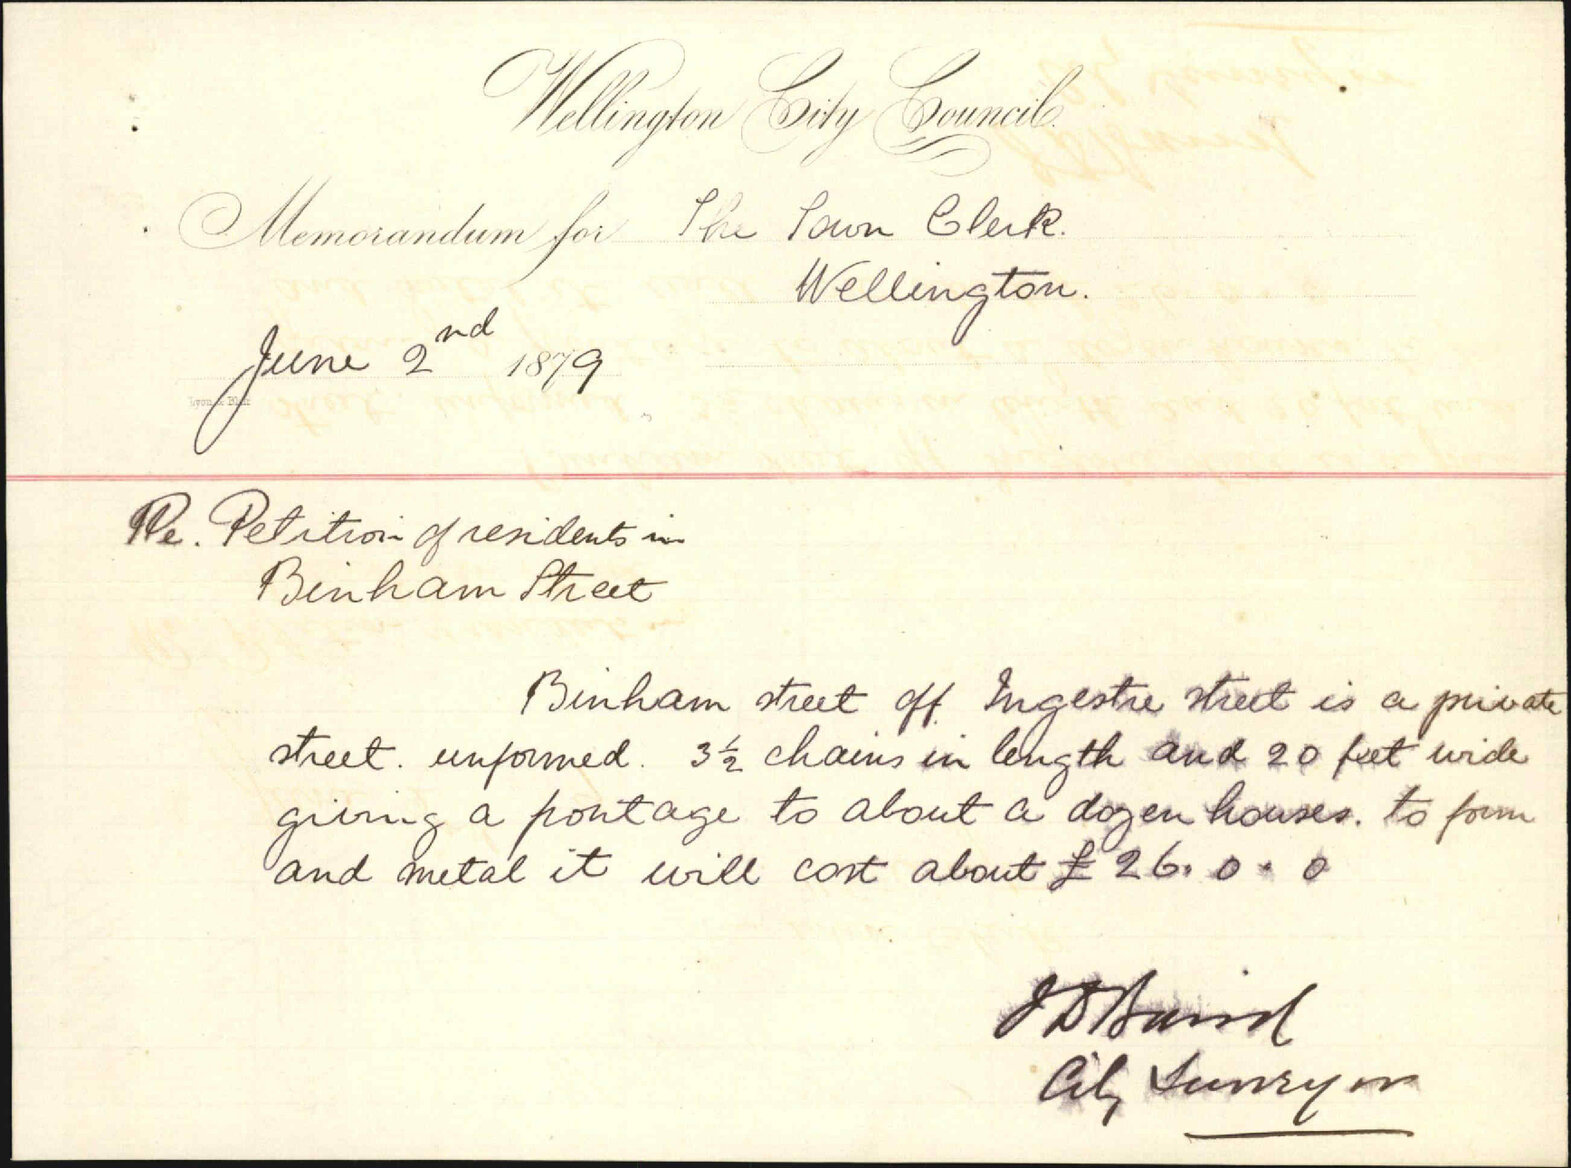 Wellington City Council.
Memorandum for The Town Clerk.
Wellington.
June 2nd 1879
Lyon & Blair
Re. Petition of residents in
Binham Street
Binham street off Ingestre street is a private
street. unformed. 3½ chains in length and 20 feet wide
giving a frontage to about a dozen houses. to form
and metal it will cost about £26.0.0
J D Baird
City Surveyor